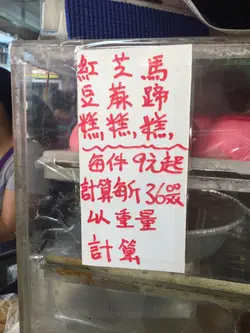 紅豆糕,
芝蔴糕,
馬蹄糕,
每件9元起
計算每斤36.00
以重量
計算